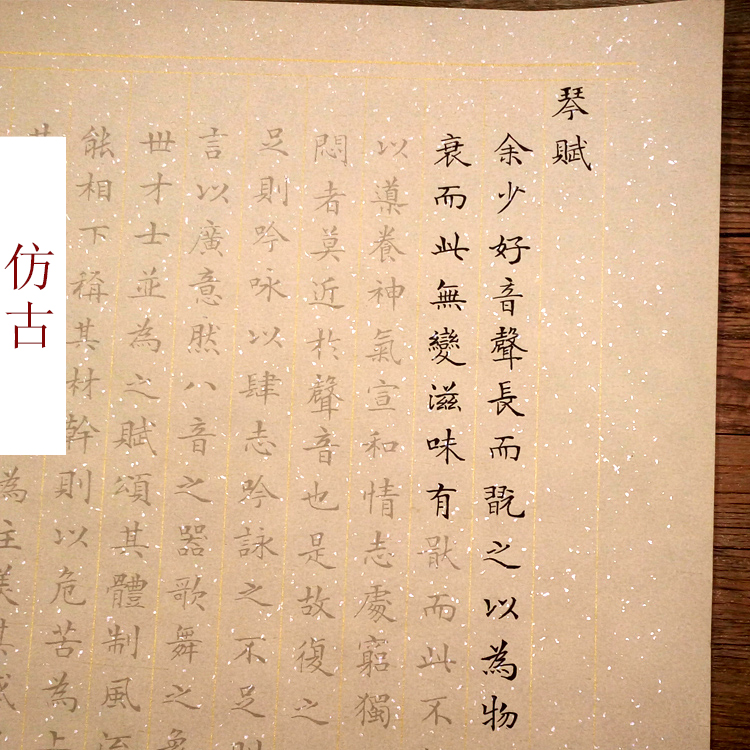 琴賦
余少好音聲長而翫之以為物
衰而此無變滋味有猒而此不
以導養神氣宣和情志處窮獨
悶者莫近於聲音也是故復之
足則吟咏以肆志吟詠之不足則
言以廣意然八音之器歌舞之象
丗才士並為之賦頌其體制風流
能相下稱其材幹則以危苦為上
為主美其感
仿古